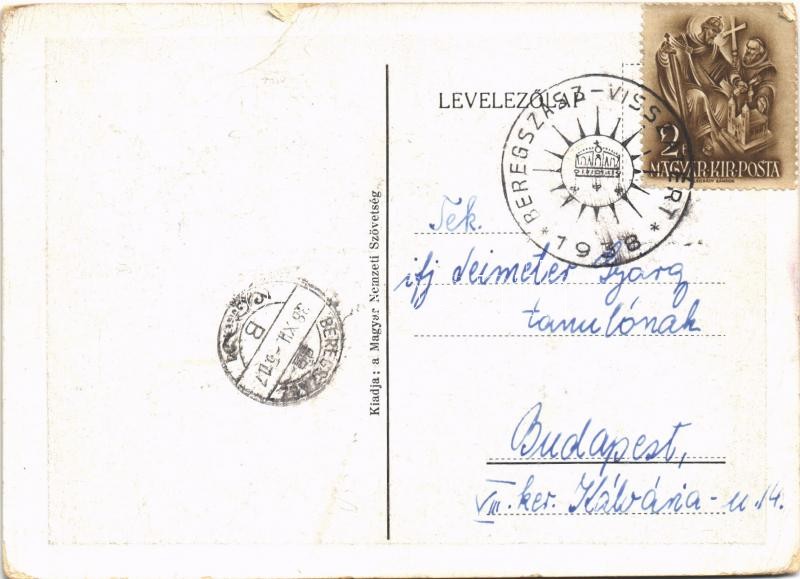 LEVELEZŐLAP
BEREGSZÁSZ-VISSZATÉRT
* 1938 *
2f
MAGYAR·KIR·POSTA
Tek.
ifj Deimeter György
tanulónak
Budapest,
VIII. ker. Kálvária-u. 14.
Kiadja: a Magyar Nemzeti Szövetség
BEREGSZÁSZ
38 XII
B